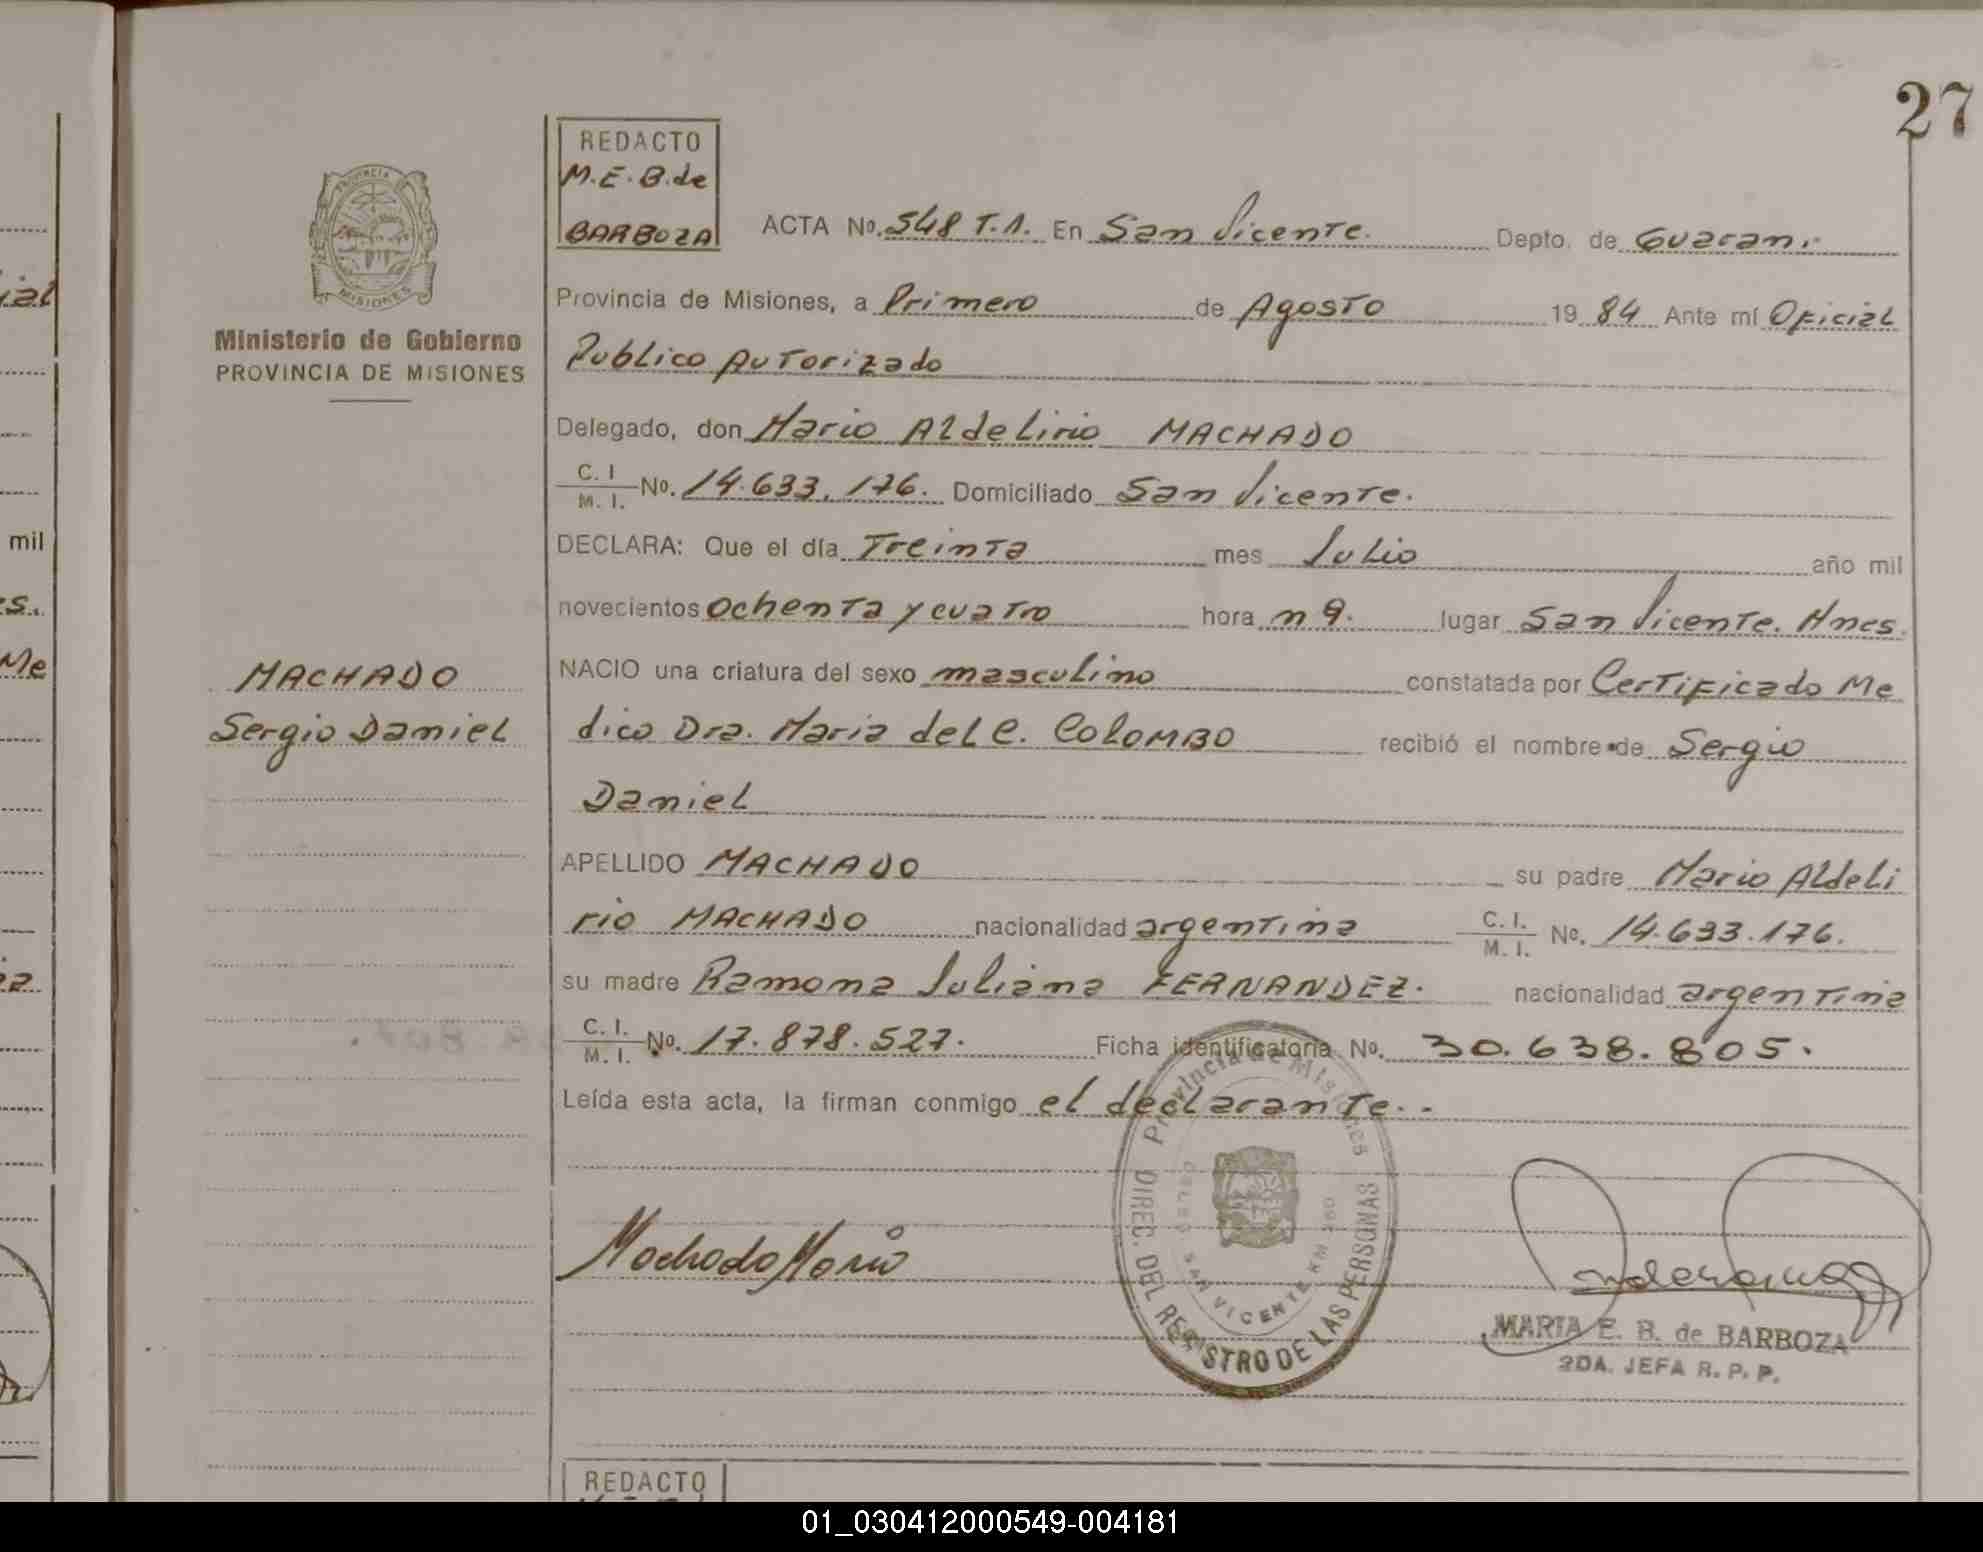 27
REDACTO
M.E.B.de
BARBOZA
ACTA No. 548 T.1. En San Vicente. Depto. de Guarani
PROVINCIA
MISIONES
Ministerio de Gobierno
PROVINCIA DE MISIONES
Provincia de Misiones, a Primero de Agosto 19 84 Ante mí Oficial
Publico Autorizado
Delegado, don Mario Aldelirio MACHADO
C. I. / M. I. No. 14.633.176. Domiciliado San Vicente.
DECLARA: Que el día Treinta mes Julio año mil
novecientos ochenta y cuatro hora n 9. lugar San Vicente. Mnes.
NACIO una criatura del sexo masculino constatada por Certificado Me
dico Dra. Maria del C. COLOMBO recibió el nombre de Sergio
Daniel
MACHADO
Sergio Daniel
APELLIDO MACHADO su padre Mario Aldeli
rio MACHADO nacionalidad argentina C. I. / M. I. No. 14.633.176.
su madre Ramona Juliana FERNANDEZ. nacionalidad argentina
C. I. / M. I. No. 17.878.527. Ficha identificatoria No. 30.638.805.
Leída esta acta, la firman conmigo el declarante..
Machado Mario
Provincia de Misiones
DIREC. DEL REGISTRO DE LAS PERSONAS
SAN VICENTE KM
MARIA E. B. de BARBOZA
2DA. JEFA R. P. P.
REDACTO
mil
Me
01_030412000549-004181